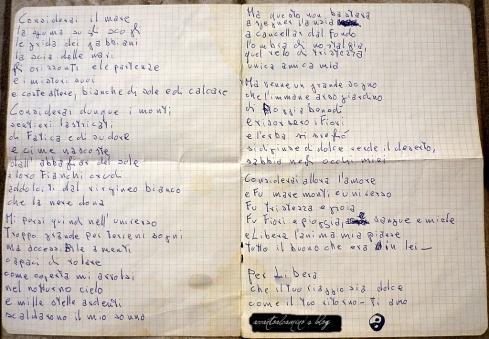 Considerai il mare
la spuma su scogli
le grida dei gabbiani
la scia delle navi
gli orizzonti e le partenze
e i misteri suoi
e coste attore, bianche di sole ed calcare
Considerai dunque i monti
sentieri lastricati
di Fatica ed sudore
e cime nascoste
dall' abbagliar del sole
a loro Fianchi crudi
addolciti dal virgineo bianco
che la neve dona
Mi persi quindi nell' universo
Troppo grande per terreni sogni
ma accessibile a menti
capaci di volare
come coperta mi avvolsi
nel notturno cielo
e mille stelle ardenti
scaldarono il mio sonno
Ma questo non bastava
a segnar la
a cancellar dal Fondo
l'ombra di nostalgia,
quel velo di tristezza,
unica amica mia
Ma venne un grande sogno
che l'immane arso giardino
di pioggia bagnò
e risorsero i Fiori
e l'erba si
si dipinse di dolce verde il deserto,
sabbia negli occhi miei
Considerai allora l'amore
e Fu mare monti e universo
Fu tristezza e gioia
Fu Fiori e pioggia, sangue e miele
e Libera l'anima mia pianse
Tutto il buono che era in lei
Per Libera
che il Tuo viaggio sia dolce
come il Tuo ritorno - Ti amo
's blog